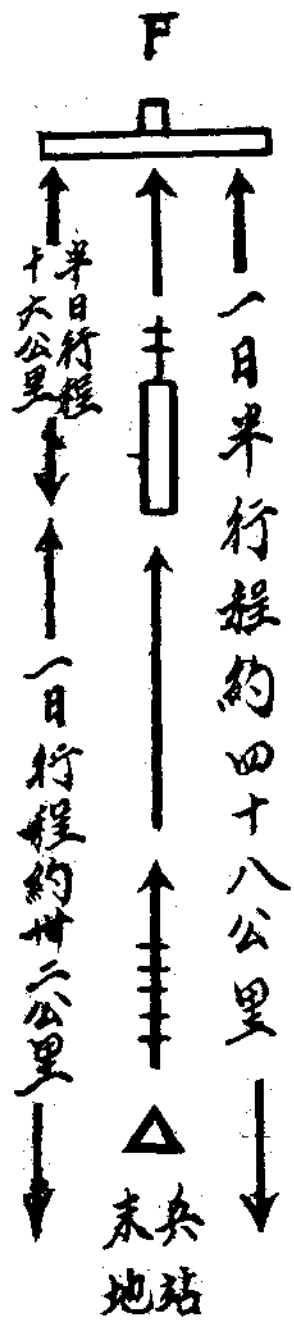 F
一日半行程約四十八公里
半日行程
十六公里
一日行程約卅二公里
兵站
末地